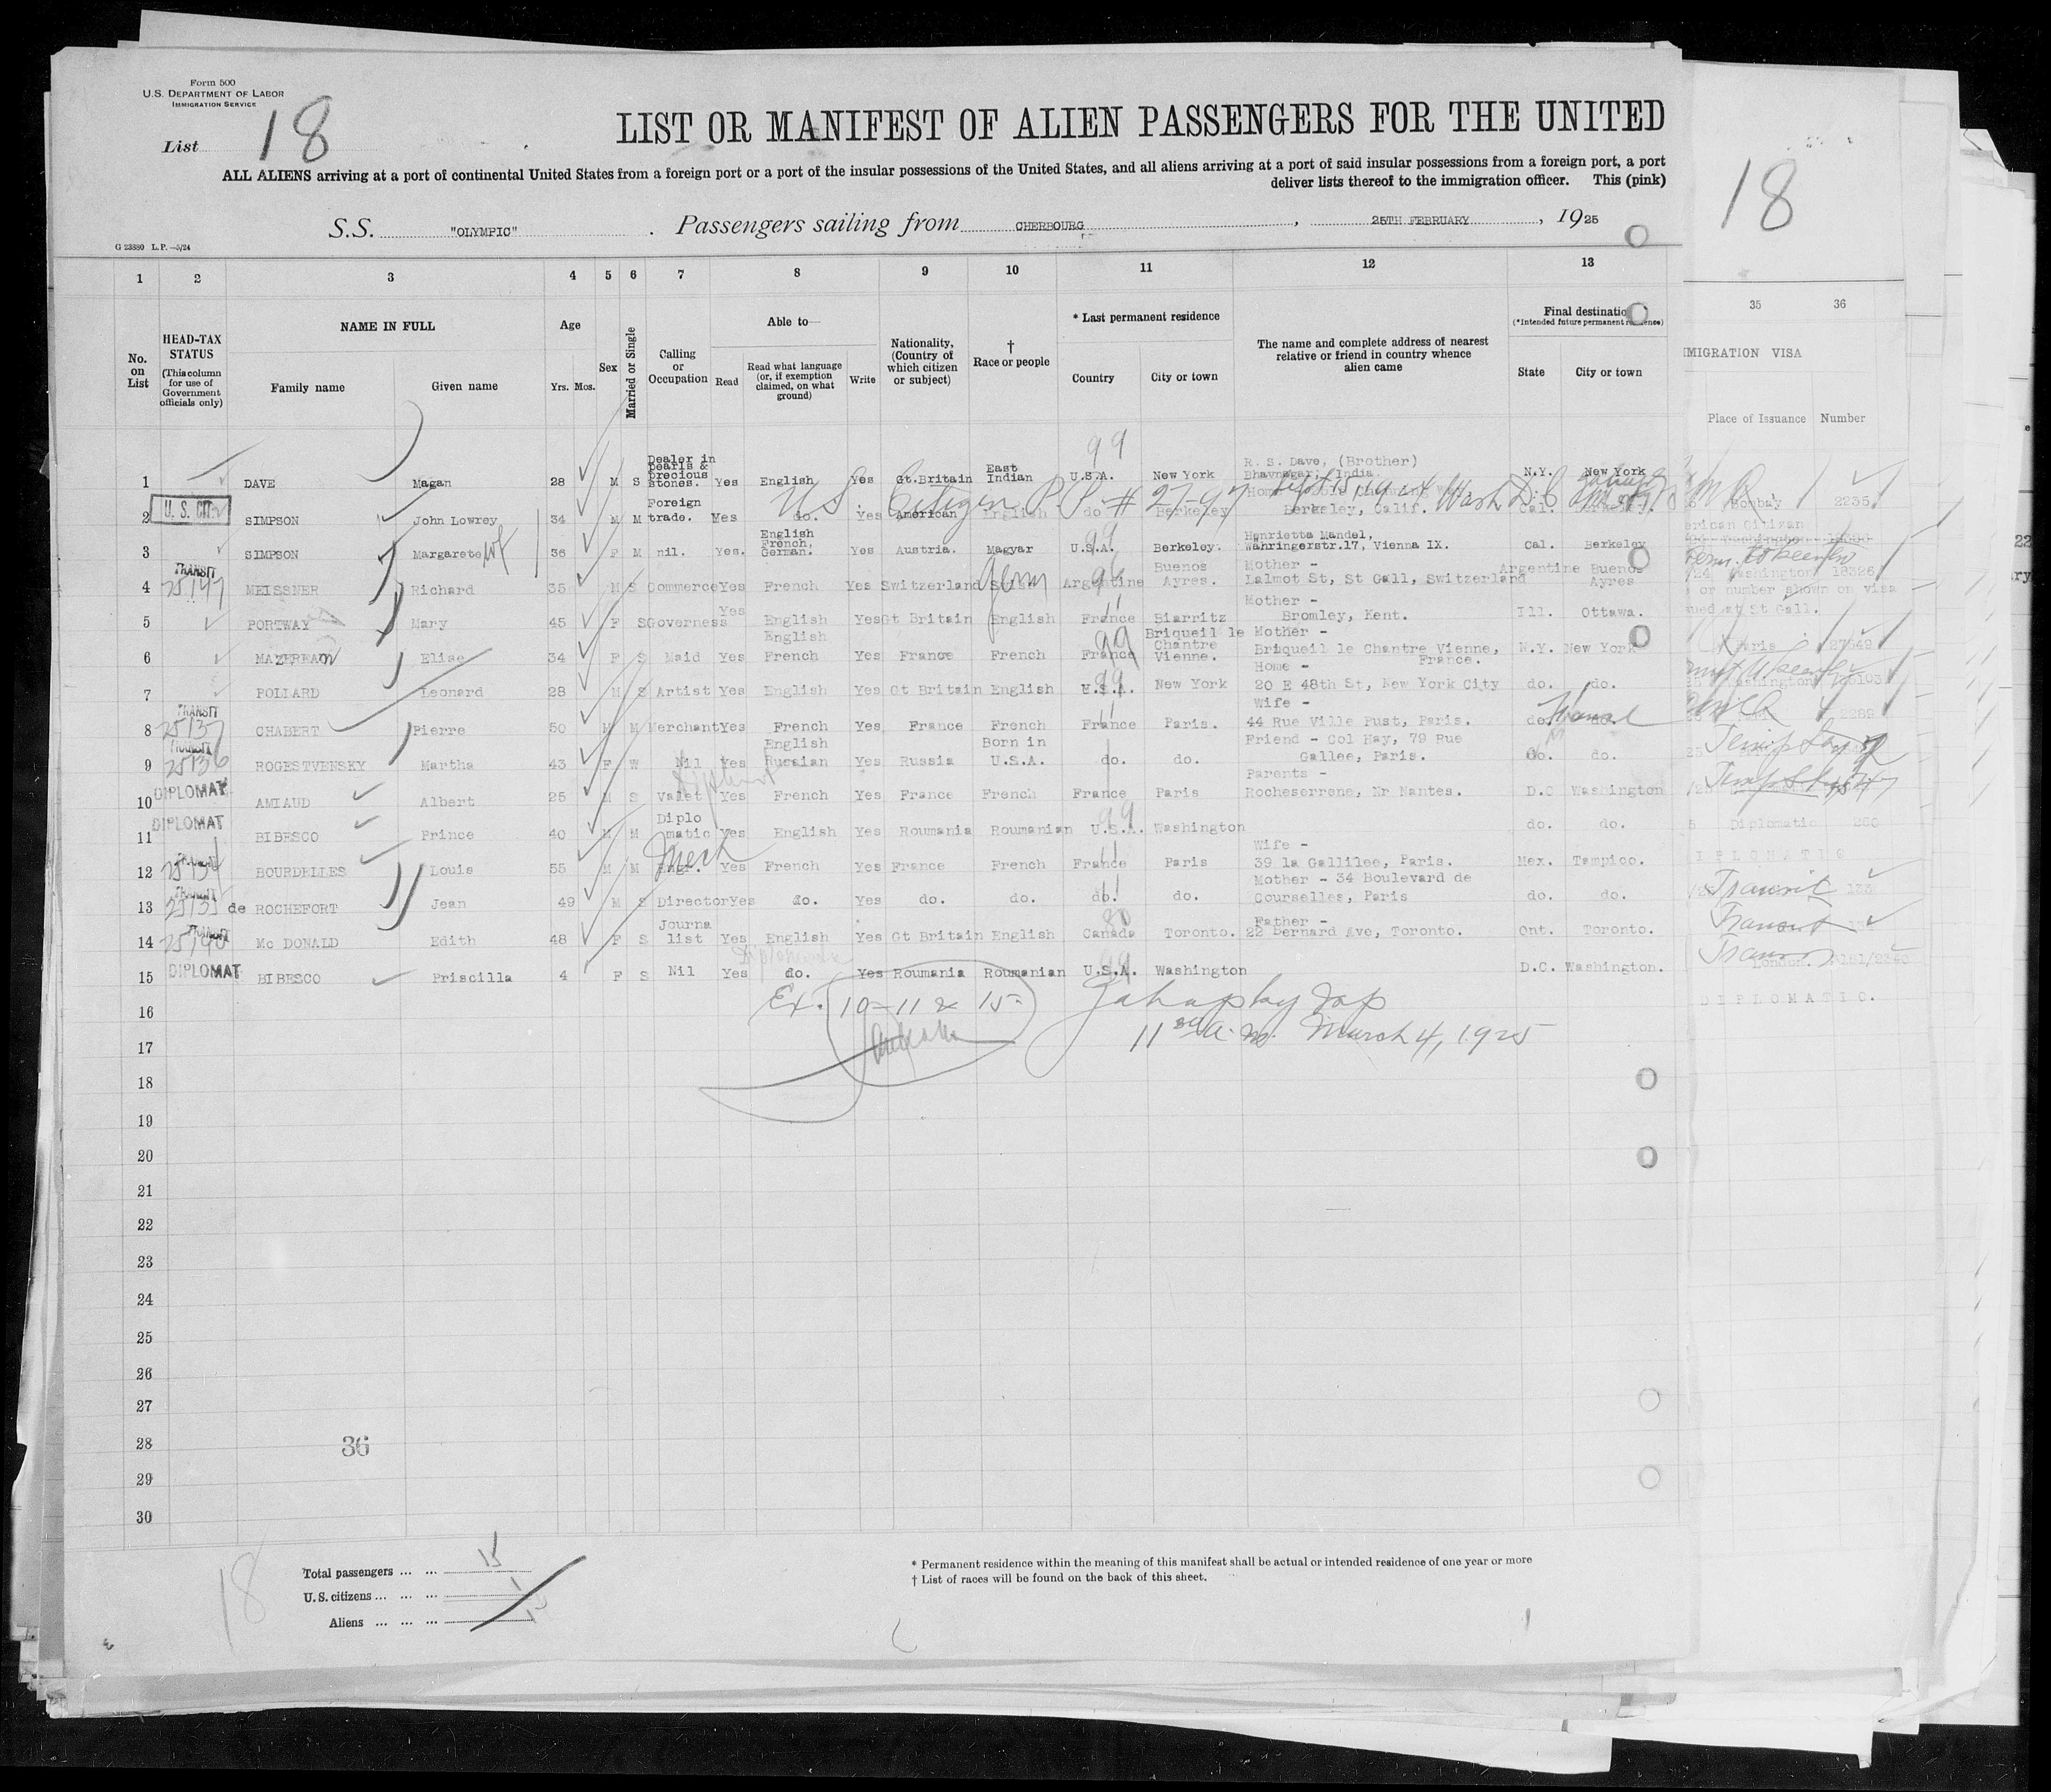 Form 500
U.S. DEPARTMENT OF LABOR
IMMIGRATION SERVICE
List 18
LIST OR MANIFEST OF ALIEN PASSENGERS FOR THE UNITED
ALL ALIENS arriving at a port of continental United States from a foreign port or a port of the insular possessions of the United States, and all aliens arriving at a port of said insular possessions from a foreign port, a port
deliver lists thereof to the immigration officer. This (pink)
18
S.S. "OLYMPIC" . Passengers sailing from CHERBOURG , 25TH FEBRUARY , 1925
G 23880 L.P.—5/24
1 2 3 4 5 6 7 8 9 10 11 12 13
35 36
No. on List
HEAD-TAX STATUS (This column for use of Government officials only)
NAME IN FULL
Family name Given name
Age
Yrs. Mos.
Sex
Married or Single
Calling or Occupation
Able to—
Read
Read what language (or, if exemption claimed, on what ground)
Write
Nationality, (Country of which citizen or subject)
† Race or people
* Last permanent residence
Country City or town
The name and complete address of nearest relative or friend in country whence alien came
Final destination
(*Intended future permanent residence)
State City or town
IMMIGRATION VISA
Place of Issuance Number
1 DAVE Magan 28 M S Dealer in pearls & precious stones. Yes English Yes Gt.Britain East Indian U.S.A. New York R. S. Dave, (Brother) Bhavnagar, India. N.Y. New York Bombay 2235
99
U.S. Citizen P.P. # 2797 Wash D.C.
2 U.S. CIT. SIMPSON John Lowrey 34 M M Foreign trade. Yes do. Yes American English do Berkeley Berkeley, Calif. Cal. Berkeley.
3 SIMPSON Margarete Wf 36 F M nil. Yes. English French, German. Yes Austria. Magyar U.S.A. Berkeley. Henrietta Mandel, Wahringerstr.17, Vienna IX. Cal. Berkeley
4 TRANSIT 25147 MEISSNER Richard 35 M S Commerce Yes French Yes Switzerland Swiss Germ Argentine Buenos Ayres. Mother - Lalmot St, St Gall, Switzerland Argentine Buenos Ayres Washington 18326
or number shown on visa
St Gall.
5 PORTWAY Mary 45 F S Governess Yes English Yes Gt Britain English France Biarritz Mother - Bromley, Kent. Ill. Ottawa.
6 MAZEREAU Elise 34 F S Maid Yes English French Yes France French France Briqueil le Chantre Vienne. Mother - Briqueil le Chantre Vienne, France. N.Y. New York
7 POLLARD Leonard 28 M S Artist Yes English Yes Gt Britain English U.S.A. New York Home - 20 E 48th St, New York City do. do.
8 TRANSIT 25137 CHABERT Pierre 50 M M Merchant Yes French Yes France French France Paris. Wife - 44 Rue Ville Pust, Paris. do. 2289
9 TRANSIT 25136 ROGESTVENSKY Martha 43 F W Nil Yes English Russian Yes Russia Born in U.S.A. do. do. Friend - Col Hay, 79 Rue Gallee, Paris. do. do.
10 DIPLOMAT AMIAUD Albert 25 M S Valet Yes French Yes France French France Paris Parents - Rocheserrone, Nr Nantes. D.C Washington
11 DIPLOMAT BIBESCO Prince 40 M M Diplomatic Yes English Yes Roumania Roumanian U.S.A. Washington do. do. Diplomatic 260
12 TRANSIT BOURDELLES Louis 55 M M Engr. Mech Yes French Yes France French France Paris Wife - 39 la Gallilee, Paris. Mex. Tampico. DIPLOMATIC
13 TRANSIT de ROCHEFORT Jean 49 M S Director Yes do. Yes do. do. do. do. Mother - 34 Boulevard de Courselles, Paris do. do. Transit
14 TRANSIT 25140 Mc DONALD Edith 48 F S Journalist Yes English Yes Gt Britain English Canada Toronto. Father - 22 Bernard Ave, Toronto. Ont. Toronto. Transit
15 DIPLOMAT BIBESCO Priscilla 4 F S Nil Yes do. Yes Roumania Roumanian U.S.A. Washington D.C. Washington. London.
DIPLOMATIC.
16
Ex. 10-11 & 15
17
11 A.M. March 4, 1925
18
19
20
21
22
23
24
25
26
27
28
36
29
30
18
Total passengers ... ... 15
U.S. citizens ... ... ... 1
Aliens ... ... ...
* Permanent residence within the meaning of this manifest shall be actual or intended residence of one year or more
† List of races will be found on the back of this sheet.